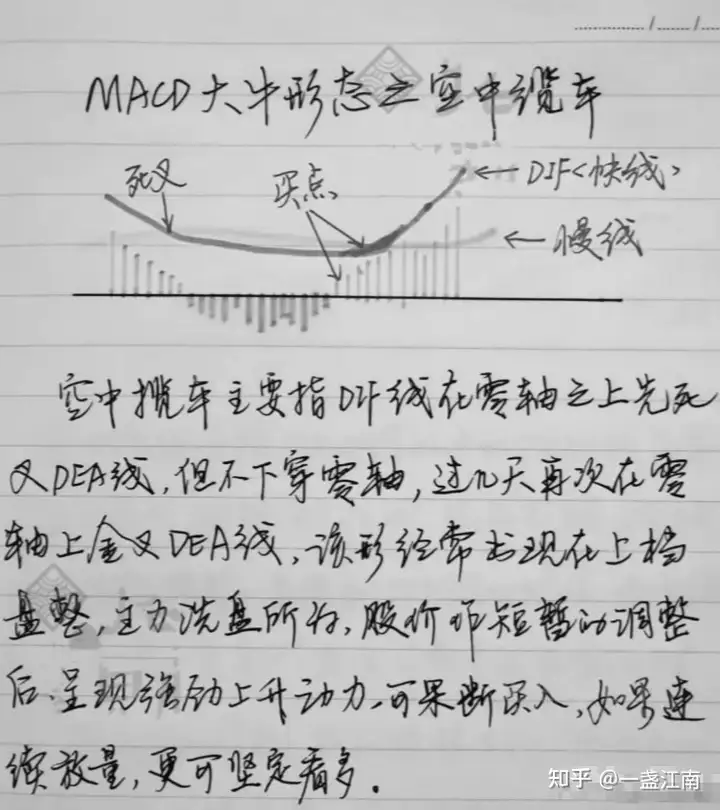 MACD大牛形态之空中缆车
死叉
买点
DIF<快线>
慢线
空中揽车主要指DIF线在零轴之上先死
叉DEA线,但不下穿零轴,过几天再次在零
轴上金叉DEA线,该形经常出现在上档
盘整,主力洗盘所为,股价作短暂的调整
后、呈现强劲上升动力,可果断买入,如果连
续放量,更可坚定看多.
知乎 @一盏江南